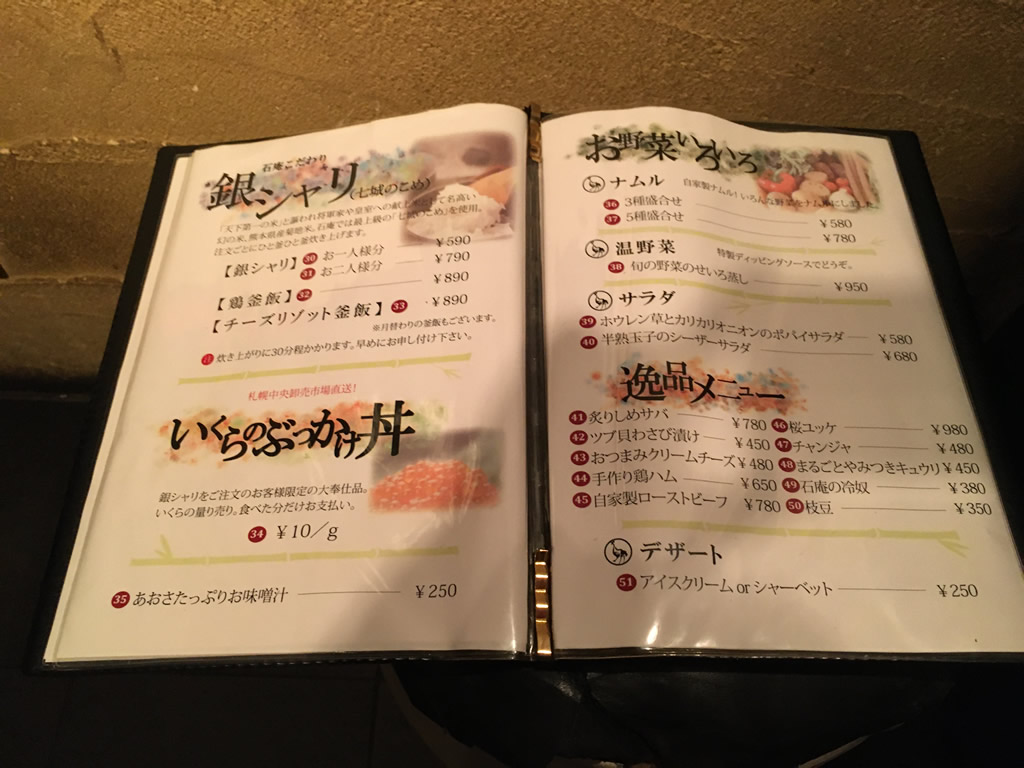 石庵こだわり
銀シャリ(七城のこめ)
「天下第一の米」と謳われ将軍家や皇室への献上米として名高い
幻の米、熊本県産菊池米。石庵では最上級の「七城のこめ」を使用。
注文ごとにひと釜ひと釜炊き上げます。
【銀シャリ】 30 お一人様分 ¥590
31 お二人様分 ¥790
【鶏釜飯】 32 ¥890
【チーズリゾット釜飯】 33 ¥890
※月替わりの釜飯もございます。
炊き上がりに30分程かかります。早めにお申し付け下さい。
札幌中央卸売市場直送!
いくらのぶっかけ丼
銀シャリをご注文のお客様限定の大奉仕品。
いくらの量り売り。食べた分だけお支払い。
34 ¥10/g
35 あおさたっぷりお味噌汁 ¥250
お野菜いろいろ
ナムル 自家製ナムル!いろんな野菜をナムルにしました
36 3種盛合せ ¥580
37 5種盛合せ ¥780
温野菜 特製ディッピングソースでどうぞ。
38 旬の野菜のせいろ蒸し ¥950
サラダ
39 ホウレン草とカリカリオニオンのポパイサラダ ¥580
40 半熟玉子のシーザーサラダ ¥680
逸品メニュー
41 炙りしめサバ ¥780
42 ツブ貝わさび漬け ¥450
43 おつまみクリームチーズ ¥480
44 手作り鶏ハム ¥650
45 自家製ローストビーフ ¥780
46 桜ユッケ ¥980
47 チャンジャ ¥480
48 まるごとやみつきキュウリ ¥450
49 石庵の冷奴 ¥380
50 枝豆 ¥350
デザート
51 アイスクリーム or シャーベット ¥250